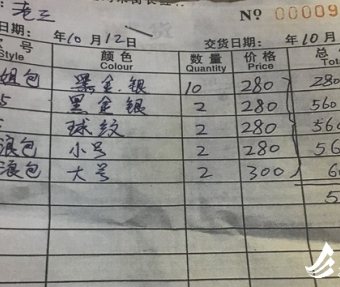 : 老三 No 00009
日期: 年10月12日 交货日期: 年10月
号 颜色 数量 价格 总
Style Colour Quantity Price Total
姐包 黑金.银 10 280 280
5 黑金银 2 280 560
球纹 2 280 560
浪包 小号 2 280 56
浪包 大号 2 300 6
5